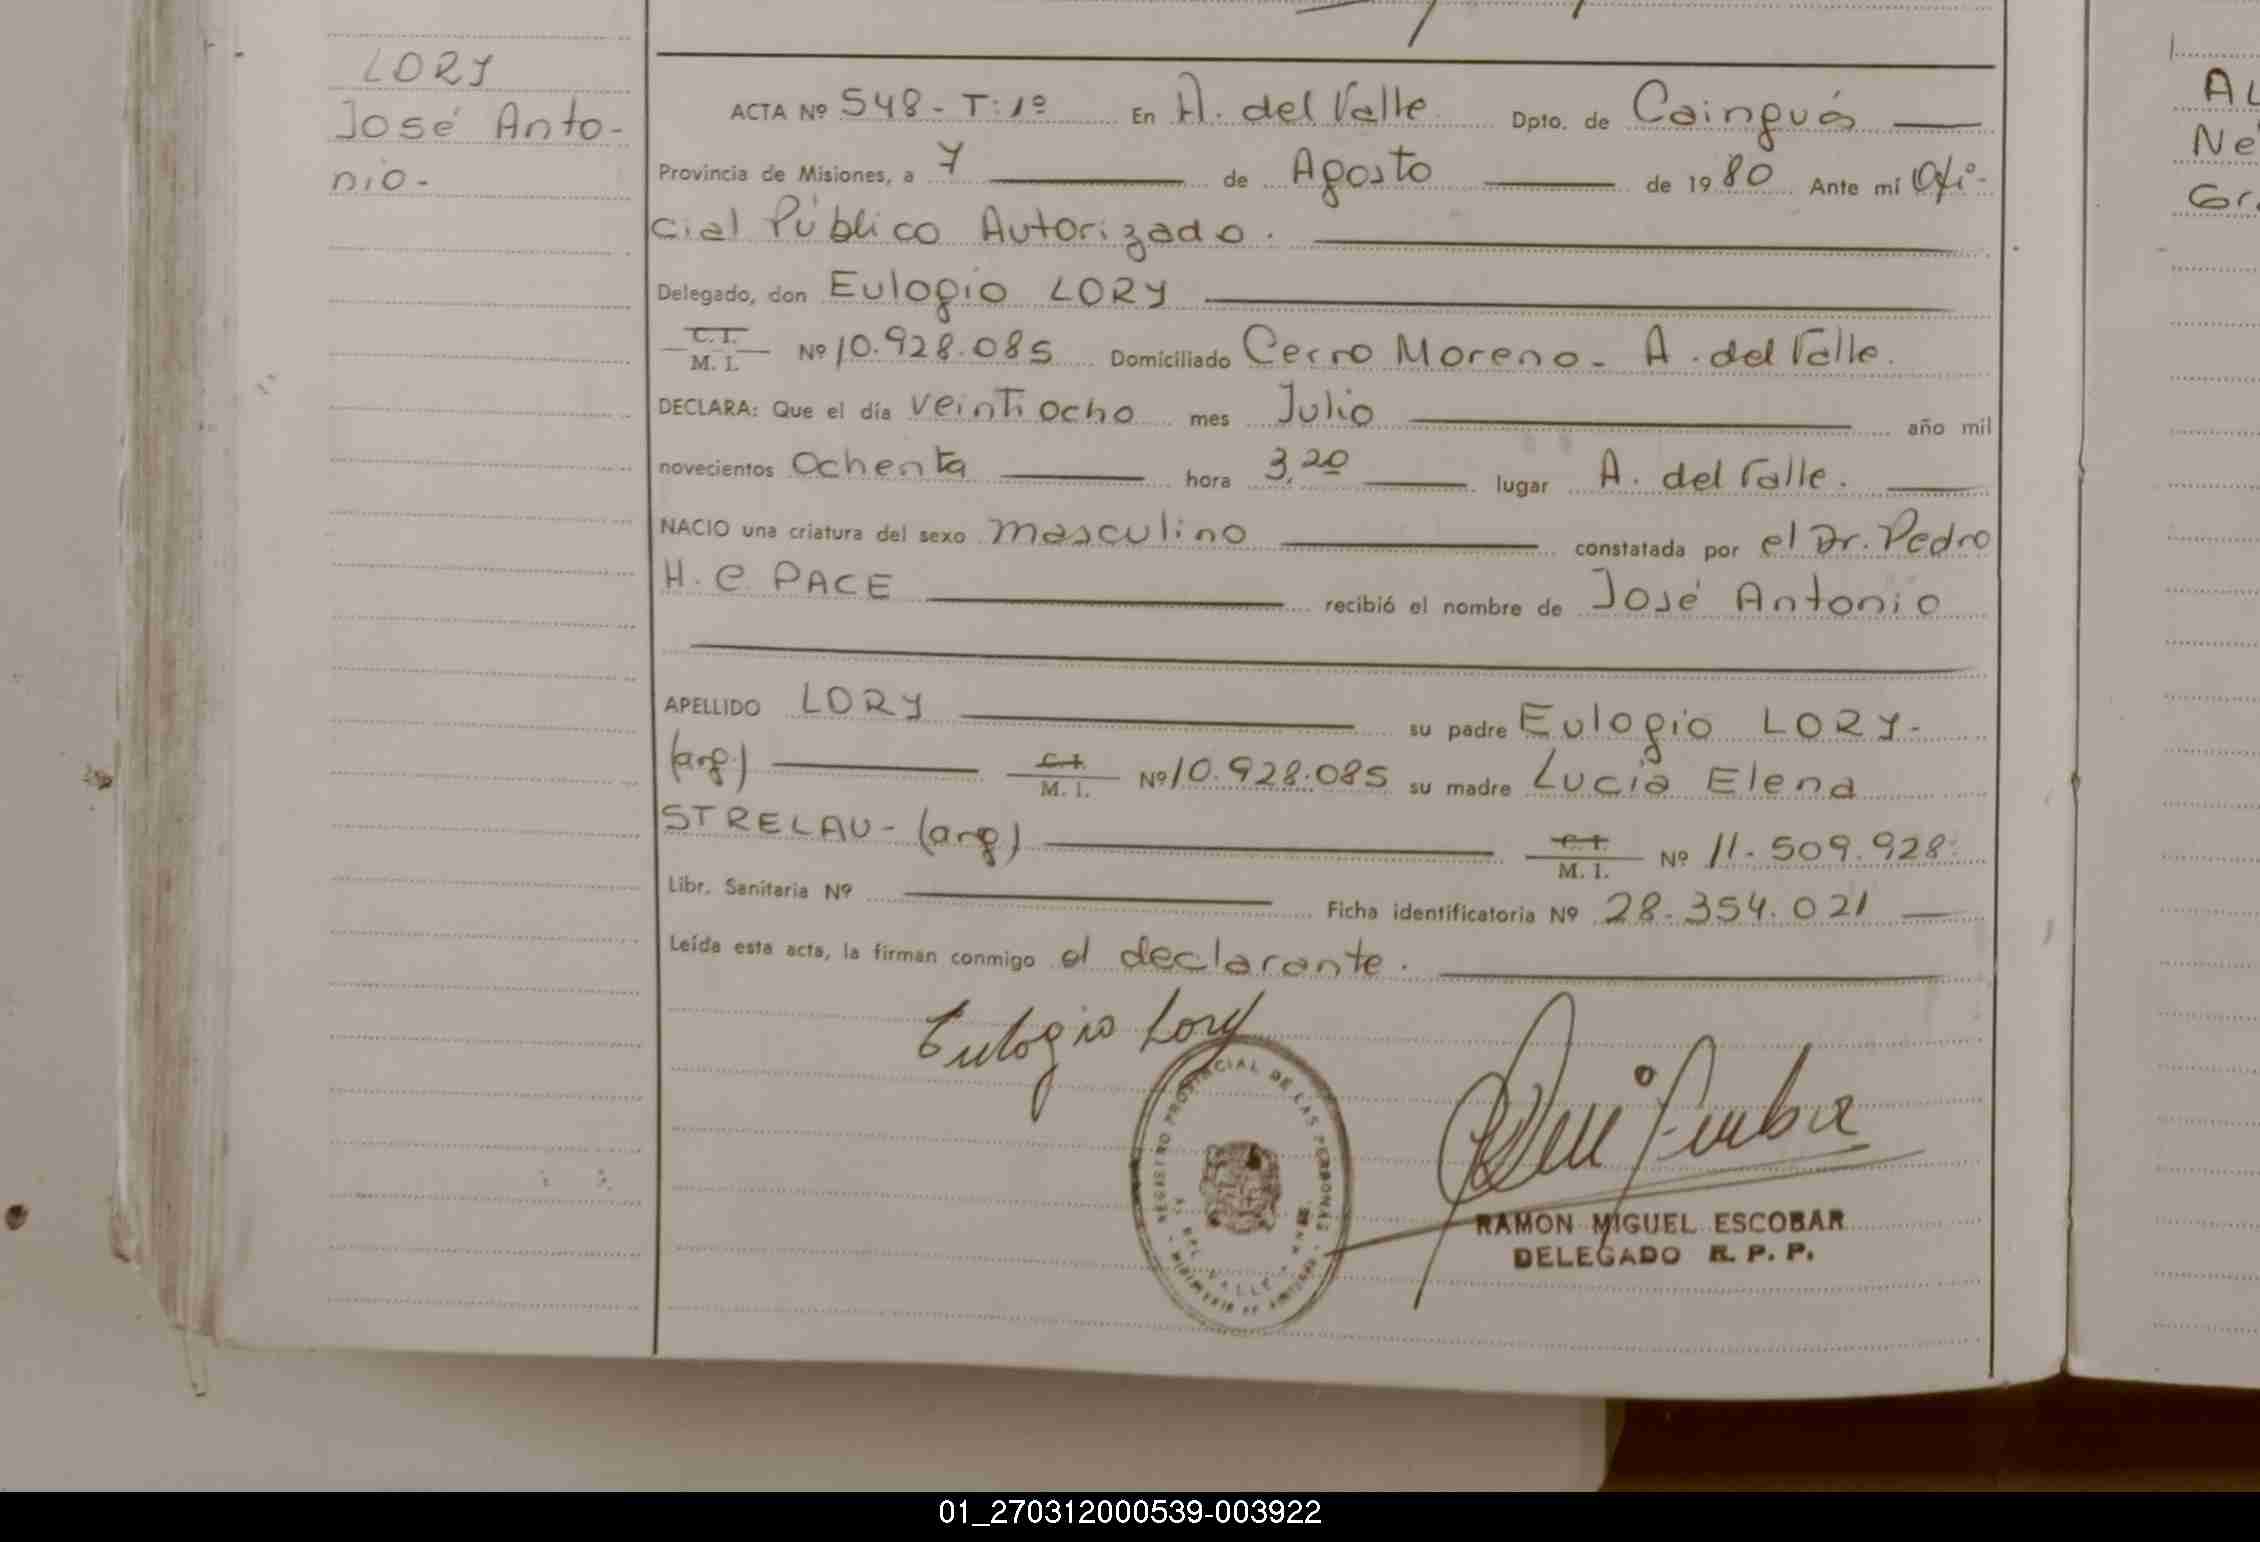 LORY
José Anto-
nio-
ACTA Nº 548 - T: 1º En A. del Valle Dpto. de Cainguás
Provincia de Misiones, a 7 de Agosto de 1980 Ante mí Ofi-
cial Público Autorizado.
Delegado, don Eulogio LORY
C. I.
M. I. Nº 10.928.085 Domiciliado Cerro Moreno - A. del Valle.
DECLARA: Que el día veintiocho mes Julio año mil
novecientos Ochenta hora 3,20 lugar A. del Valle.
NACIO una criatura del sexo masculino constatada por el Dr. Pedro
H. C PACE recibió el nombre de José Antonio
APELLIDO LORY su padre Eulogio LORY-
(arg) C. I.
M. I. Nº 10.928.085 su madre Lucía Elena
STRELAU - (arg) C. I.
M. I. Nº 11.509.928
Libr. Sanitaria Nº Ficha identificatoria Nº 28.354.021
Leída esta acta, la firman conmigo el declarante.
Eulogio Lory
REGISTRO PROVINCIAL DE LAS PERSONAS
DEL VALLE
RAMON MIGUEL ESCOBAR
DELEGADO R. P. P.
AL
Ne
Gr
01_270312000539-003922